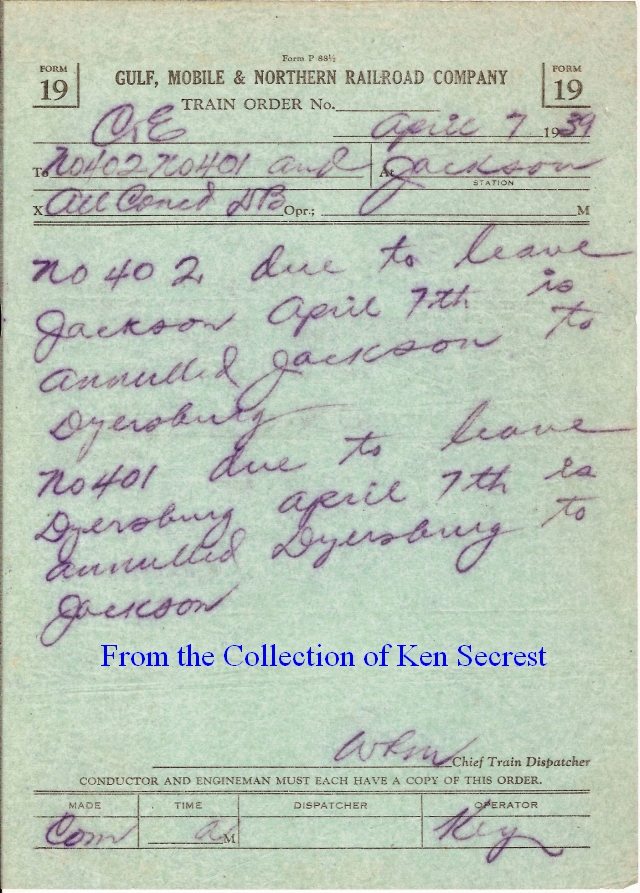 Form P 88½
FORM 19
GULF, MOBILE & NORTHERN RAILROAD COMPANY
FORM 19
TRAIN ORDER No.
C&E
April 7 1939
To No 402 No 401 and
At Jackson
STATION
X All Concd DB Opr.; M
No 402 due to leave
Jackson April 7th is
annulled Jackson to
Dyersburg
No 401 due to leave
Dyersburg April 7th is
annulled Dyersburg to
Jackson
From the Collection of Ken Secrest
Chief Train Dispatcher
CONDUCTOR AND ENGINEMAN MUST EACH HAVE A COPY OF THIS ORDER.
MADE TIME DISPATCHER OPERATOR
Com a M Key